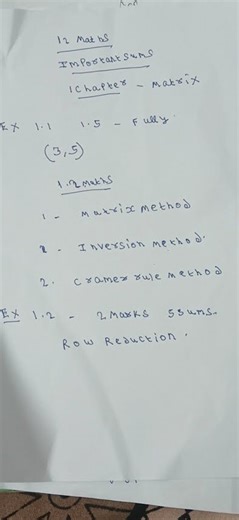 12 Maths
Important sums
1 Chapter - Matrix
Ex 1.1 1.5 - Fully
(3,5)
1.2 Maths
1 - Matrix method
2 - Inversion method.
2. Cramer rule method
Ex 1.2 - 2 Marks 5 sums.
Row Reduction.